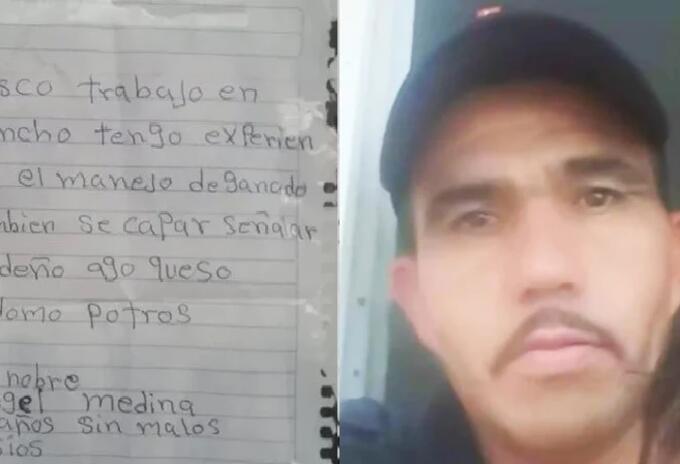 sco trabajo en
ncho tengo experien
el manejo de ganado
nbien se capar señalar
deño ago queso
domo potros
nobre
gel medina
años sin malos
sios